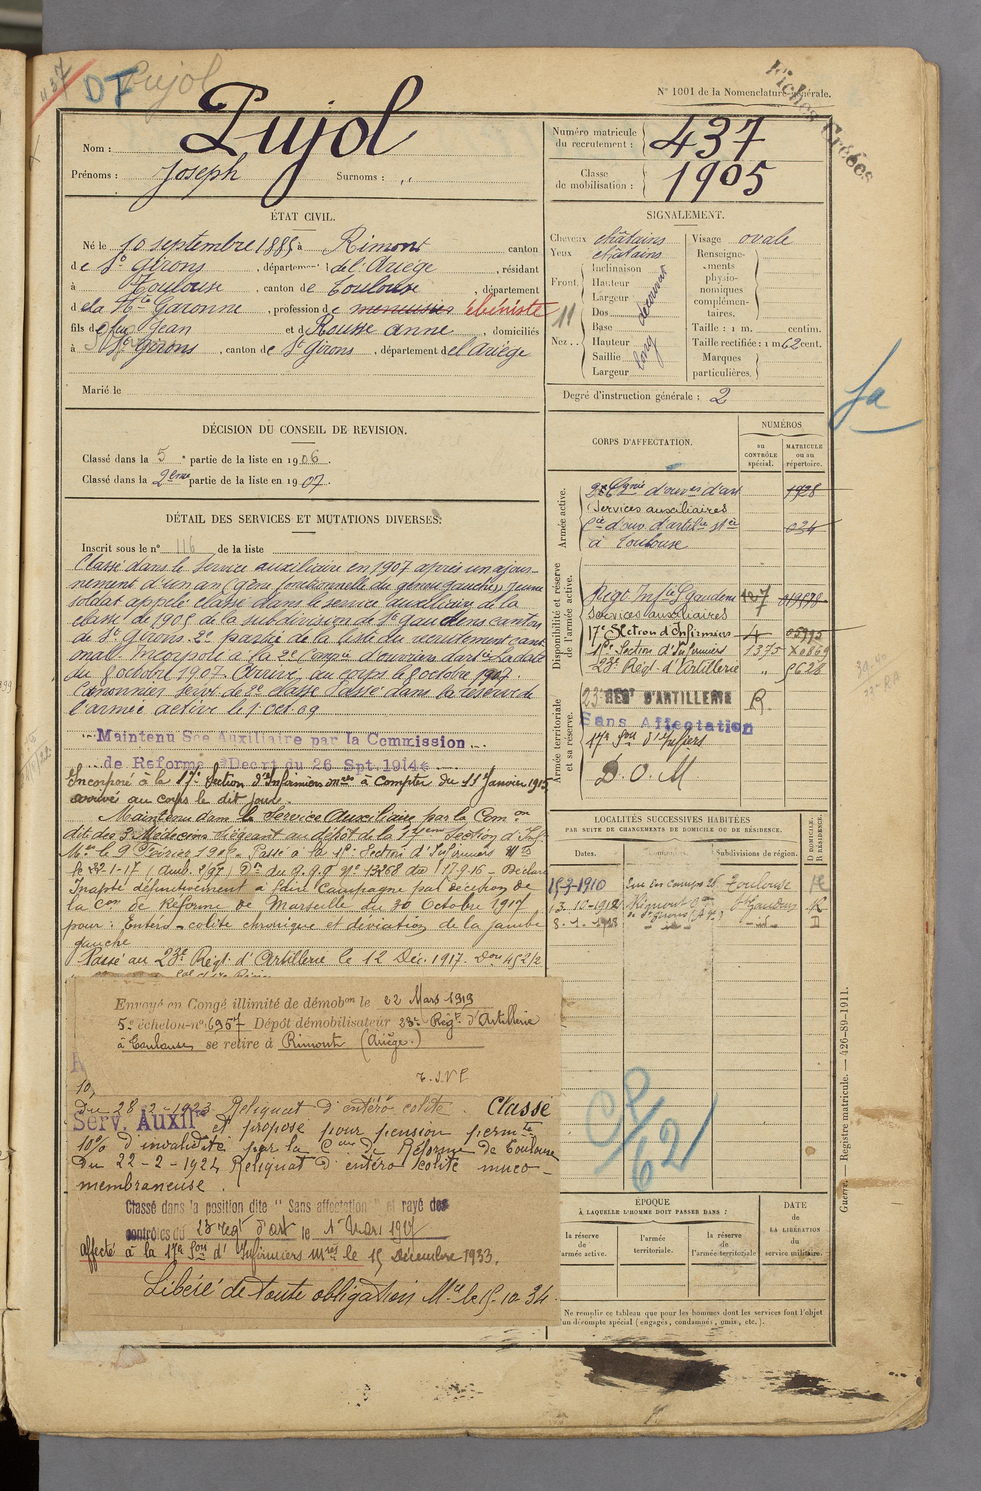 437
DF
Pujol
Fiches Créées
N° 1001 de la Nomenclature générale.
Nom : Pujol
Prénoms : Joseph Surnoms : „
Numéro matricule du recrutement : 437
Classe de mobilisation : 1905
ÉTAT CIVIL.
Né le 10 septembre 1885 à Rimont canton
de St Girons, département de l'Ariège, résidant
à Toulouse, canton de Toulouse, département
de la Hte Garonne, profession de menuisier ébéniste
fils de feu Jean et de Rousse Anne, domiciliés
à St Girons, canton de St Girons, département de l'Ariège
Marié le
SIGNALEMENT.
Cheveux châtains
Yeux châtains
Front. Inclinaison
Hauteur
Largeur
Nez. Dos
Base
Hauteur
Saillie
Largeur
long
Visage ovale
Renseignements physionomiques complémentaires.
Taille : 1 m. centim.
Taille rectifiée : 1 m 62 cent.
Marques particulières.
Degré d'instruction générale : 2
DÉCISION DU CONSEIL DE REVISION.
Classé dans la 5e partie de la liste en 1906.
Classé dans la 2eme partie de la liste en 1907.
DÉTAIL DES SERVICES ET MUTATIONS DIVERSES.
Inscrit sous le n° 116 de la liste
Classé dans le service auxiliaire en 1907 après un ajour-
nement d'un an (gêne fonctionnelle du genou gauche), Jeune
soldat appelé classé dans le service auxiliaire de la
classe de 1905 de la subdivision de St Gaudens canton
de St Girons. 2e partie de la liste du recrutement cant
onal. Incorporé à la 2e Compie d'ouvriers d'artie à la date
du 8 octobre 1907. Arrivé au corps le 8 octobre 1907.
Canonnier servt de 2e classe. Passé dans la réserve de
l'armée active le 1 oct 09
Maintenu Sce Auxiliaire par la Commission
de Réforme Décret du 26 Spt. 1914
Incorporé à la 17e Section d'Infirmiers mres à compter du 11 Janvier 1915
arrivé au corps le dit jour.
Maintenu dans le Service Auxiliaire par la Comon
dit des 3 Médecins siégeant au dépôt de la 17eme Section d'Inf.
Mre le 9 Février 1916. Passé à la 15e Section d'Infirmiers Mres
le 22-1-17 Don du G.Q.G. N° 13268 du 17.9.16 - Déclaré
Inapte définitivement à faire Campagne par décision de
la Con de Réforme de Marseille du 30 Octobre 1917
pour : Entéro-colite chronique et déviation de la jambe
gauche
Passé au 23e Régt d'Artillerie le 12 Déc. 1917.
Envoyé en Congé illimité de démobon le 22 Mars 1919
5e échelon-n° 6957 Dépôt démobilisateur 23e Régt d'Artillerie
à Toulouse se retire à Rimont (Ariège.)
T.S.V.P
Du 28-2-1923 Reliquat d'entéro colite. Classé
Serv. Auxil et proposé pour pension permte
10% d'invalidité par la Con de Réforme de Toulouse
Du 22-2-1924 Reliquat d'entéro colite muco-
membraneuse.
Classé dans la position dite "Sans affectation" et rayé des
contrôles du 23 regt d'art le 1 Mars 1927
affecté à la 17e Son d'Infirmiers mres le 15 Décembre 1933.
Libéré de toute obligation Mre le 15-10-34
CORPS D'AFFECTATION.
NUMÉROS
au CONTRÔLE spécial.
MATRICULE ou au répertoire.
Armée active.
2e Cgnie d'ouvers d'art 1928
Services auxiliaires
Cie d'ouv. d'artie 024
à Toulouse
Disponibilité et réserve de l'armée active.
Regt Infie St Gaudens
Services auxiliaires
17e Section d'Infirmiers 4
15e Section d'Infirmiers 1375
23e Régt d'Artillerie „ 9628
Armée territoriale et sa réserve.
23e REGt D'ARTILLERIE R.
Sans Affectation
17e Son d'Infiers
D. O. M
fa
LOCALITÉS SUCCESSIVES HABITÉES
PAR SUITE DE CHANGEMENTS DE DOMICILE OU DE RÉSIDENCE.
Dates. Communes. Subdivisions de région. D DOMICILE. R RÉSIDENCE.
15-3-1910 Toulouse R
13-10-1912 Rimont St Gaudens R
8-1-1913 id D
CP/62
ÉPOQUE
À LAQUELLE L'HOMME DOIT PASSER DANS :
la réserve de l'armée active. l'armée territoriale. la réserve de l'armée territoriale
DATE de LA LIBÉRATION du service militaire.
Ne remplir ce tableau que pour les hommes dont les services font l'objet
d'un décompte spécial (engagés, condamnés, omis, etc.).
Guerre. — Registre matricule. — 426-89-1911.